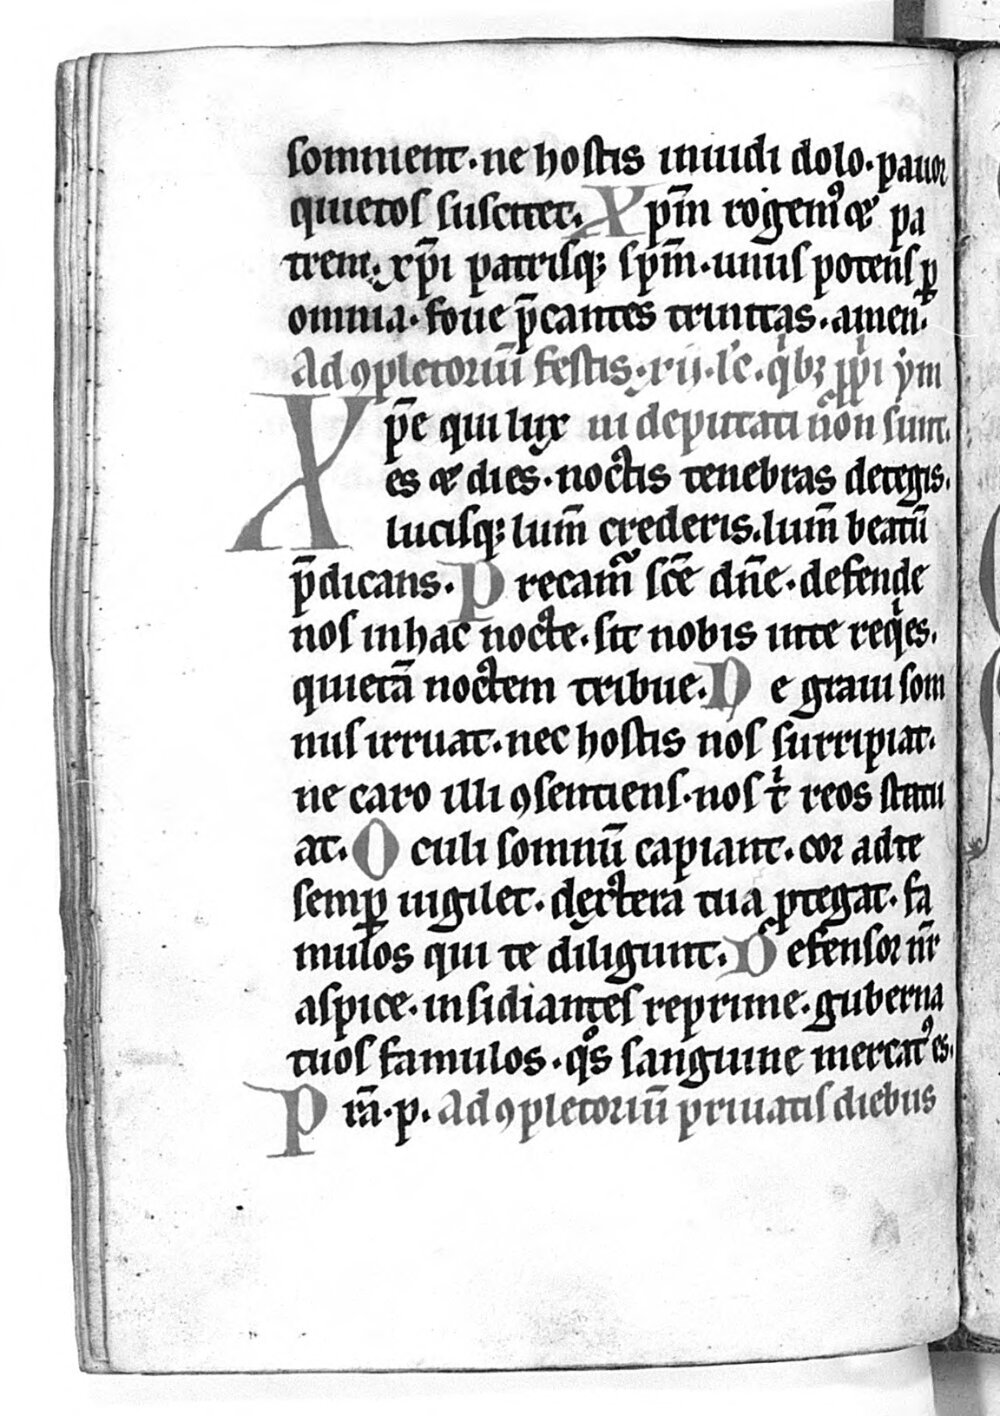 somnient·ne hostis inuidi dolo·pauor
quietos suscitet. Xp̄m rogem᷒ & pa
trem·xp̄i patrisq; sp̄m·unus potens ꝑ
omnia·foue p̄cantes trinitas·amen·
Ad ꝯpletoriū festis·xij·lc̄·qͥbꝫ ꝓpͥi ẏm
Xp̄e qui lux ni deputati n̄on sunt.
es & dies·noctis tenebras detegis.
lucisq; lum̄ crederis.lum̄ beatū
p̄dicans·Precam᷒ sc̄e dn̄e·defende
nos in hac nocte·sit nobis inte reqͥes.
quietā noctem tribue.Ne grauis som
nus irruat·nec hostis nos surripiat.
ne caro illi ꝯsentiens·nos tͥ reos statu
at.Oculi somnū capiant·cor adte
semꝑ uigilet·dextera tua ꝓtegat·fa
mulos qui te diligunt.Defensor nr̄
aspice·insidiantes reprime·guberna
tuos famulos·qͦs sanguine mercat᷒ es.
P rā·p. Ad ꝯpletoriū priuatis diebus